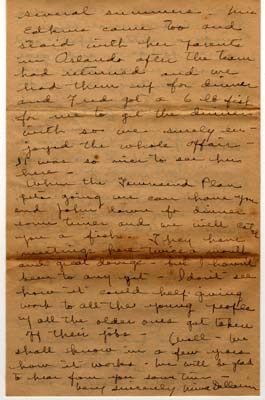 several summers. Mrs
Edkins came too and
staid with her parents
in Orlando after the team
had returned and we
had them up for dinner
and Fred got a 6 lb fish
for me to get the dinner
with so we surely en-
joyed the whole affair -
It was so nice to see him
here -
When the Townsend Plan
gets going we can have you
and John down to dinner
some time and we will eat
you a fish. They have
meetings here twice a month
a great doings but I haven't
been to any yet - I don't see
how it could help giving
work to all the young people
if all the older ones got taken
off their jobs - Well - We
shall know in a few years
how it works - We will be glad
to hear from you some time
Very sincerely